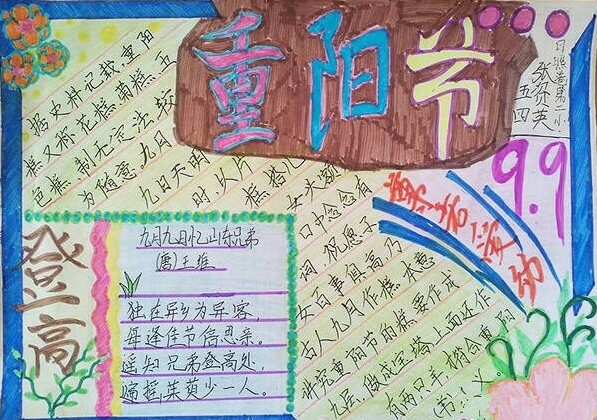 重阳节
日照港第二小
五四
9.9
据史料记载,重阳
糕又称花糕、菊糕、五
色糕,制无定法,较
为随意。九月
九日天明
时,以片
糕搭儿
女头额,
口中念念有
词,祝愿子
女百事俱高,乃
古人九月作糕本意
讲究重阳节的糕要作成
九层,做成宝塔上面还作
有两只羊,符合重阳
之义。
尊老爱幼
登高
九月九日忆山东兄弟
(唐)王维
独在异乡为异客,
每逢佳节倍思亲。
遥知兄弟登高处,
遍插茱萸少一人。